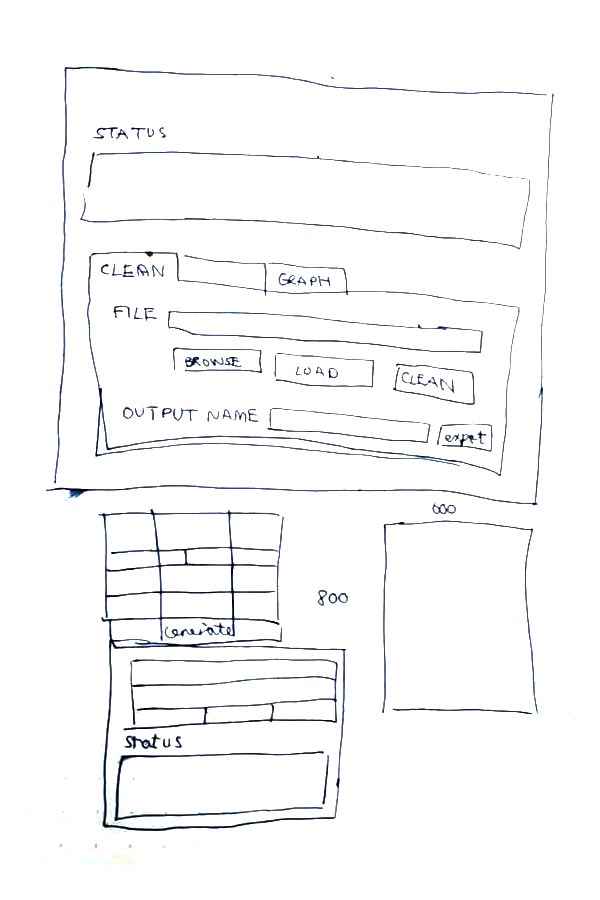 STATUS
CLEAN
GRAPH
FILE
BROWSE
LOAD
CLEAN
OUTPUT NAME
expot
600
800
Generate
Status